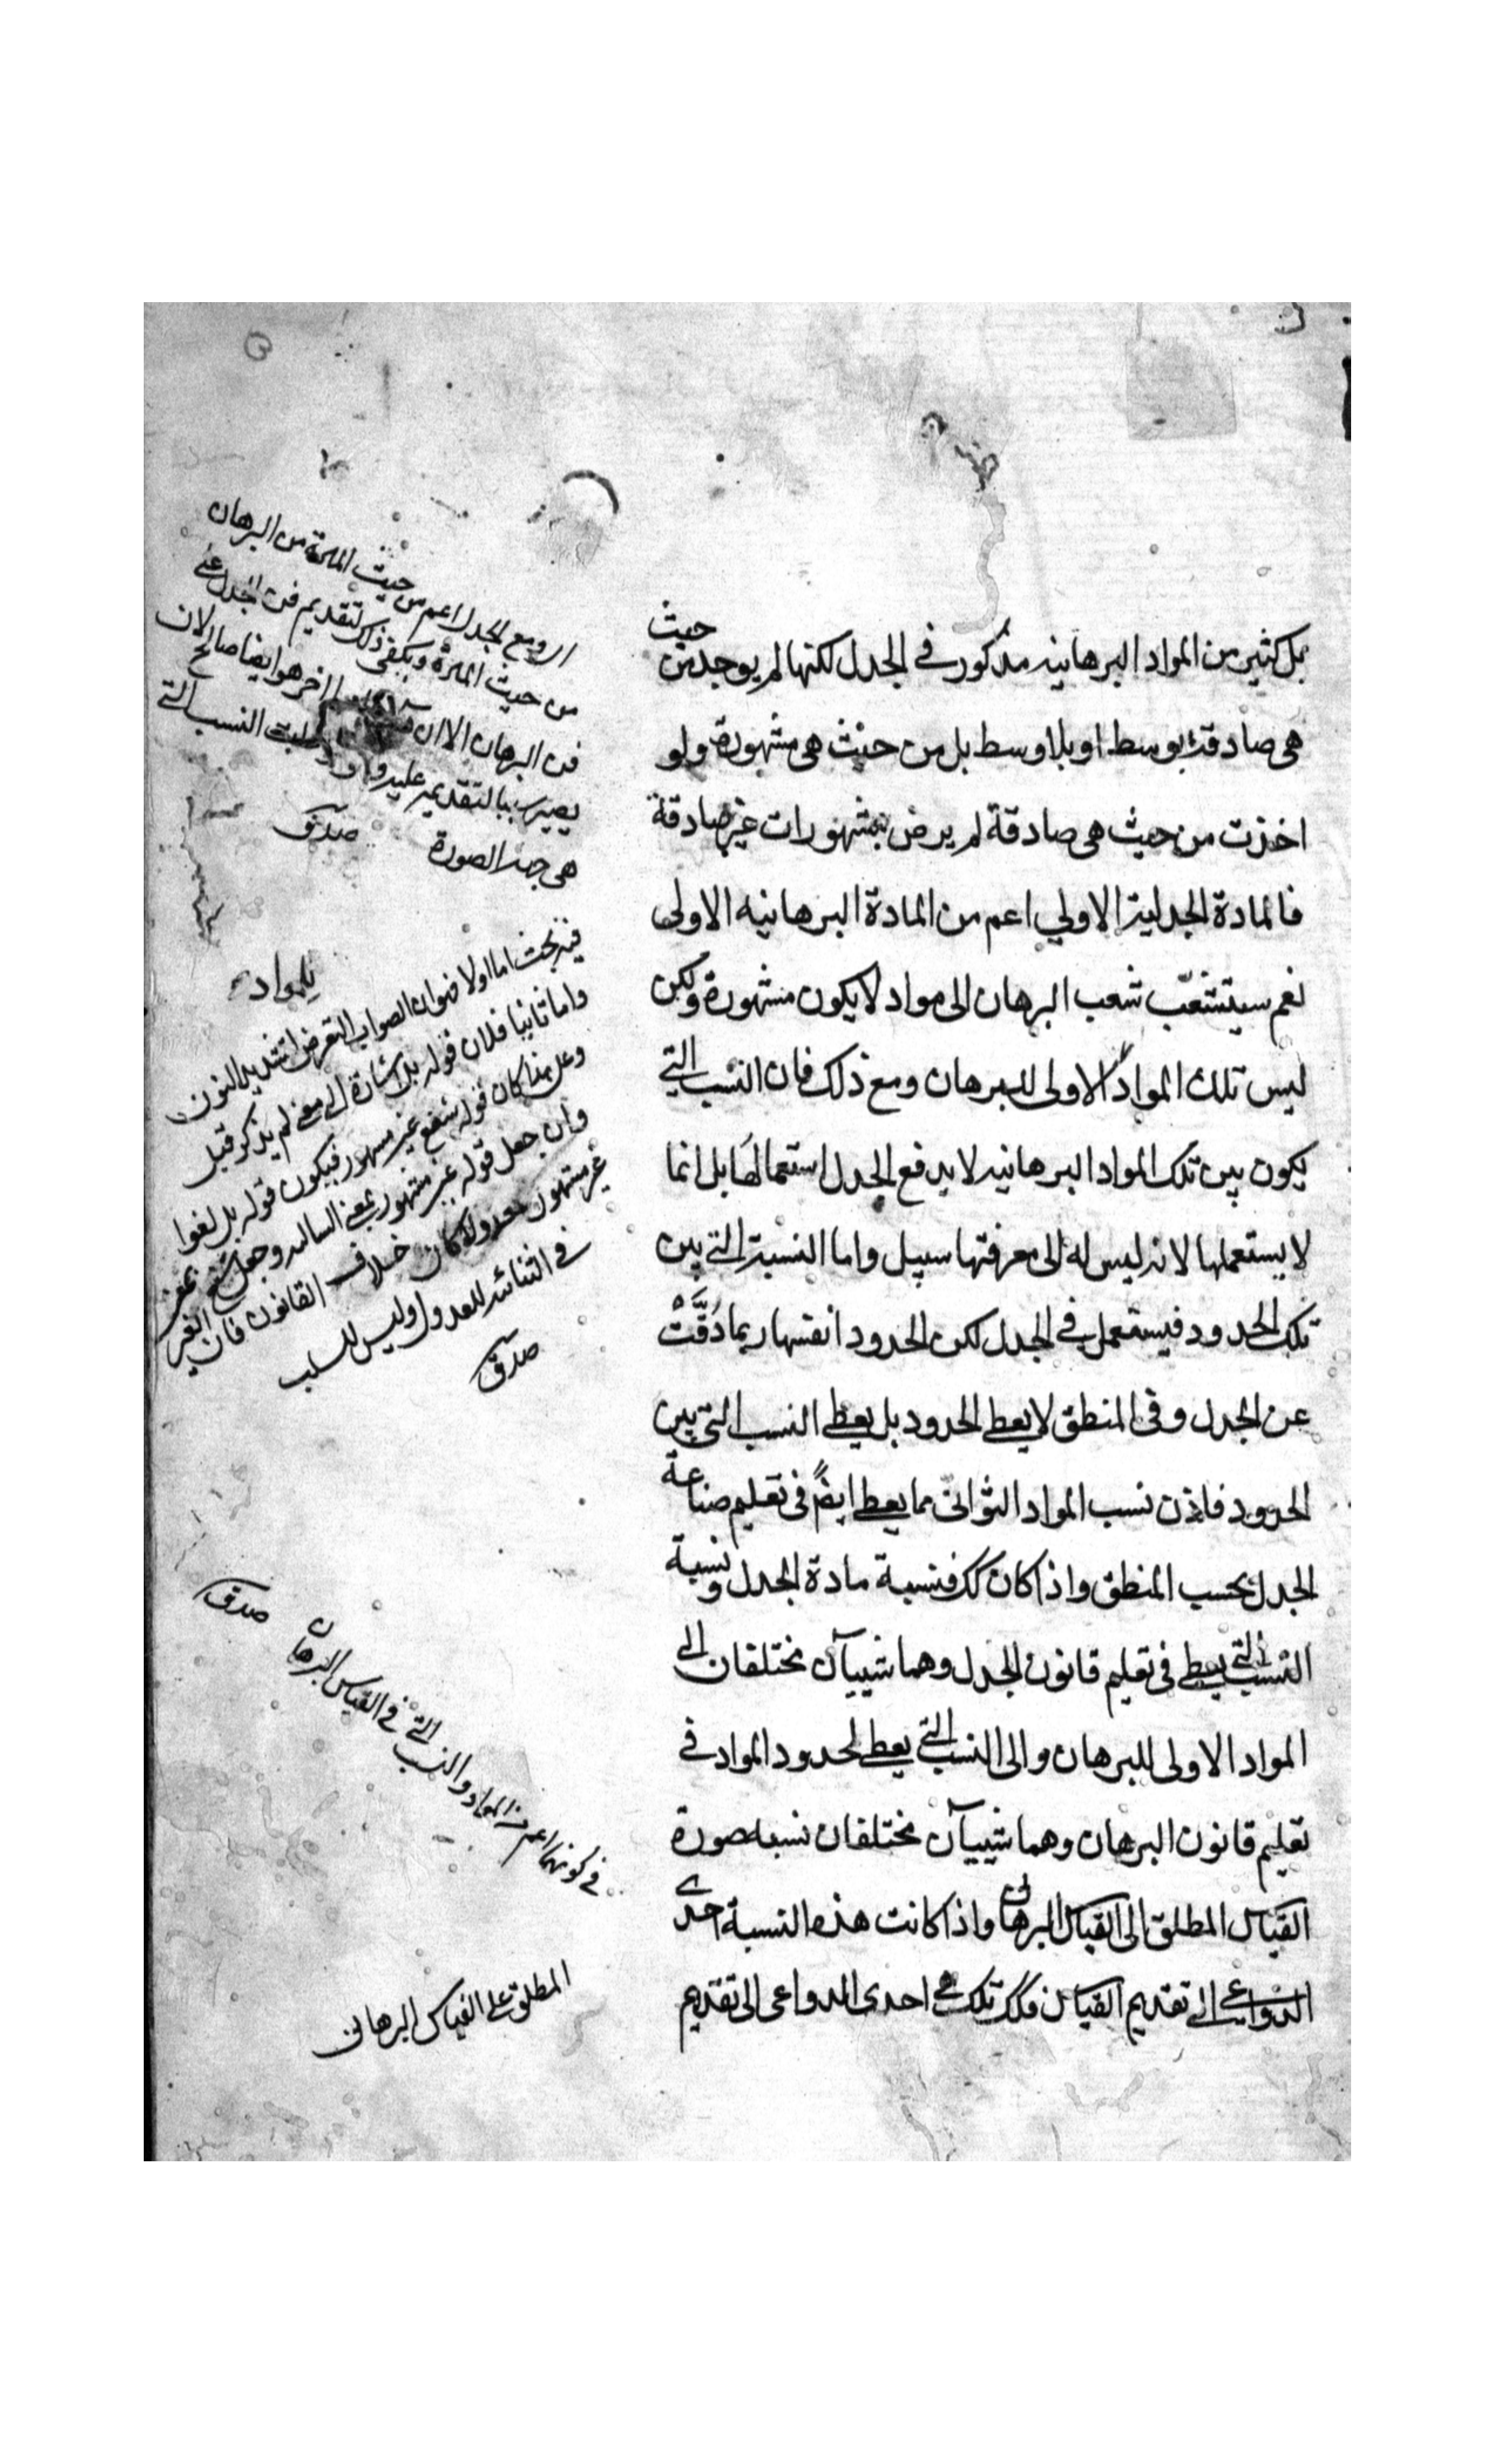 بل كثير من المواد البرهانيه مذكور في الجدل لكنها لم يوجد من حيث
هى صادقة بوسط او بلا وسط بل من حيث هى مشهورة ولو
اخذت من حيث هى صادقة لم يرض بمشهورات غير صادقة
فالمادة الجدلية الاولي اعم من المادة البرهانيه الاولى
نعم سيتشعّب شعب البرهان الى مواد لا يكون مشهورة ولكن
ليس تلك المواد الاولى للبرهان ومع ذلك فان النسب التي
يكون بين تلك المواد البرهانيه لا يدفع الجدل استعمالها بل انما
لا يستعملها لانه ليس له الى معرفتها سبيل واما النسبة التي بين
تلك الحدود فيستعمل في الجدل لكن الحدود انفسها ربما دُقَّتْ
عن الجدل وفى المنطق لا يعطى الحدود بل يعطى النسب التى بين
الحدود فاذن نسب المواد الثوانى مما يعطى ايضً فى تعليم صناعة
الجدل بحسب المنطق واذا كان كك فنسبة مادة الجدل ونسبة
النسب التي يعطى فى تعليم قانون الجدل وهما شييآن مختلفان الى
المواد الاولى للبرهان والى النسب التي يعطى لحدود المواد فى
تعليم قانون البرهان وهما شييآن مختلفان نسبه صورة
القياس المطلق الى القياس البرهانى واذا كانت هذه النسبة احدى
الدواعى الى تقديم القياس فكك تلك هى احدى الدواعى الى تقديم
الجدل اعم من حيث المادة من البرهان
من حيث المادة ويكفى ذلك لتقديم فن الجدل على
فن البرهان الا ان اخر هو ايضا صالح لان
يصير سببا لتقديمه عليه النسب التي
هى جهة الصورة صدقى
بالمواد
فيه بحث اما اولا فهو ان الصواب التعرض لتشديد النون
واما ثانيا فلان قوله بل اشارة الى معنى لم يذكر قبل
وعلى هذا كان قوله غير مشهور فيكون قوله بل لغوا
وان جعل قوله غير مشهور بمعنى السالبه وجعل
غير مشهور معدولا كان خلاف القانون فان الغير
فى الثنائيه للعدول وليس للسلب
صدقى
فى كونهما اعم من المواد والنسب التي فى القياس البرهان صدقى
المطلق على القياس البرهانى